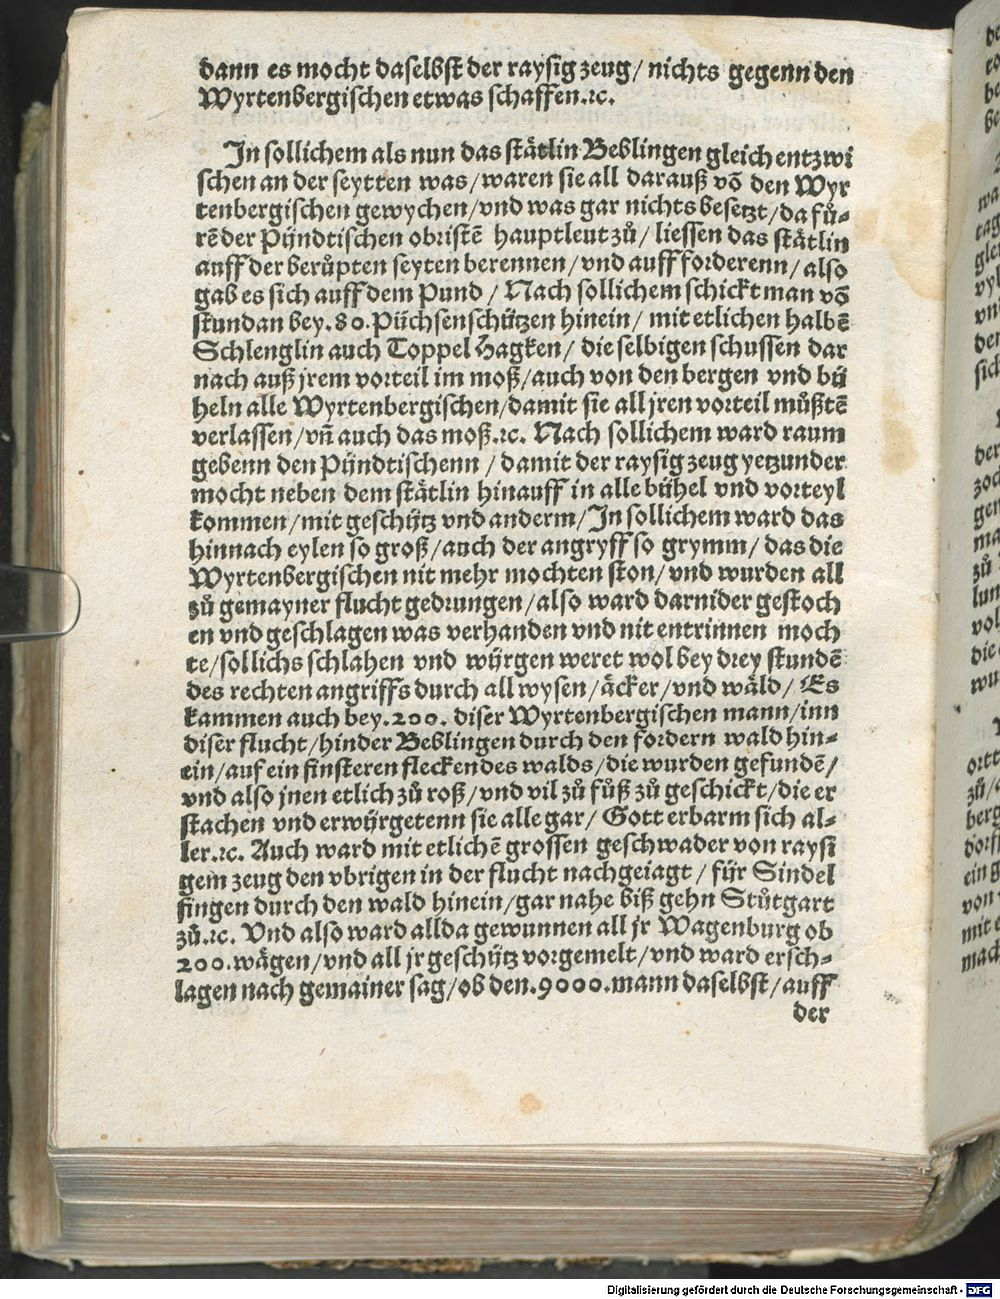 dann es mocht daselbst der raysig zeug/ nichts gegenn den
Wyrtenbergischen etwas schaffen.ꝛc.
In sollichem als nun das stätlin Beblingen gleich entzwi
schen an der seytten was/waren sie all darauß vō den Wyr
tenbergischen gewychen/vnd was gar nichts besetzt/da fů⸗
rē der Pündtischen obristē hauptleut zů/ liessen das stätlin
auff der berůpten seyten berennen/vnd auff forderenn/also
gab es sich auff dem Pund / Nach sollichem schickt man vō
stundan bey.80.Püchsenschützen hinein/ mit etlichen halbē
Schlenglin auch Toppel Hagken/ die selbigen schussen dar
nach auß jrem vorteil im moß/auch von den bergen vnd bü
heln alle Wyrtenbergischen/damit sie all jren vorteil můßtē
verlassen/vn̄ auch das moß.ꝛc. Nach sollichem ward raum
gebenn den Pündtischenn / damit der raysig zeug yetzunder
mocht neben dem stätlin hinauff in alle bühel vnd vorteyl
kommen/mit geschütz vnd anderm/In sollichem ward das
hinnach eylen so groß/auch der angryff so grymm/ das die
Wyrtenbergischen nit mehr mochten ston/vnd wurden all
zů gemayner flucht gedrungen/also ward darnider gestoch
en vnd geschlagen was verhanden vnd nit entrinnen moch
te/sollichs schlahen vnd würgen weret wol bey drey stundē
des rechten angriffs durch all wysen/äcker/vnd wäld/ Es
kammen auch bey.200. diser Wyrtenbergischen mann/inn
diser flucht/hinder Beblingen durch den fordern wald hin⸗
ein/auf ein finsteren flecken des walds/die wurden gefundē/
vnd also jnen etlich zů roß/vnd vil zů fůß zů geschickt/die er
stachen vnd erwürgetenn sie alle gar/ Gott erbarm sich al⸗
ler.ꝛc. Auch ward mit etlichē grossen geschwader von raysi
gem zeug den vbrigen in der flucht nachgeiagt / für Sindel
fingen durch den wald hinein/gar nahe biß gehn Stůtgart
zů.ꝛc. Vnd also ward allda gewunnen all jr Wagenburg ob
200.wägen/vnd all jr geschütz vorgemelt/vnd ward ersch⸗
lagen nach gemainer sag/ob den.9000.mann daselbst/auff
der
Digitalisierung gefördert durch die Deutsche Forschungsgemeinschaft - DFG